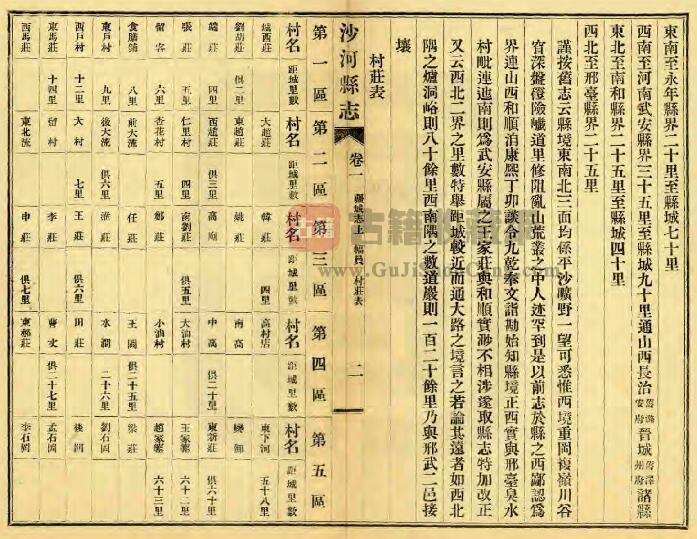 東南至永年縣界二十里至縣城七十里
西南至河南武安縣界三十五里至縣城九十里通山西長治舊潞安府晉城舊澤州府諸縣
東北至南和縣界二十五里至縣城四十里
西北至邢臺縣界二十五里
謹按舊志云縣境東南北三面均係平沙曠野一望可悉惟西境重岡複嶺川谷
窅深盤磴險巇道里修阻亂山荒叢之中人迹罕到是以前志於縣之西鄙認為
界連山西和順洎康熙丁卯談令九乾奉文詣勘始知縣境正西實與邢臺臬水
村毗連迤南則為武安縣屬之王家莊與和順實渺不相涉遂取縣志特加改正
又云西北二界之里數特舉距城較近而通大路之境言之若論其遠者如西北
隅之爐洞峪則八十餘里西南隅之數道巖則一百二十餘里乃與邢武二邑接
壤
村莊表
沙河縣志 卷一 疆域志上 幅員 村莊表 二
第一區 第二區 第三區 第四區 第五區
村名 距城里數 村名 距城里數 村名 距城里數 村名 距城里數 村名 距城里數
城西莊 大趙莊 韓莊 四里 高村店 東下河 五十八里
劉胡莊 俱二里 東趙莊 姚莊 南高
端莊 四里 西趙莊 俱三里 高廟 中高 俱二十里 東新莊 俱六十里
張莊 五里 仁里村 四里 南劉莊 俱五里 大油村 王家莊 六十二里
留客 六里 杏花村 五里 鄭莊 小油村 趙家莊 六十三里
食膳鋪 八里 前大流 任莊 王岡 俱二十五里 欒莊
東戶村 九里 後大流 俱六里 權莊 水澗 二十六里 劉石岡
西戶村 十二里 大村 七里 王莊 俱六里 田莊 後澗
東馬莊 十四里 留村 李莊 曹莊 俱二十七里 孟石岡
西馬莊 東北流 申莊 俱七里 東葛莊 李石岡
古籍收藏網
www.GuJiShouCang.Com